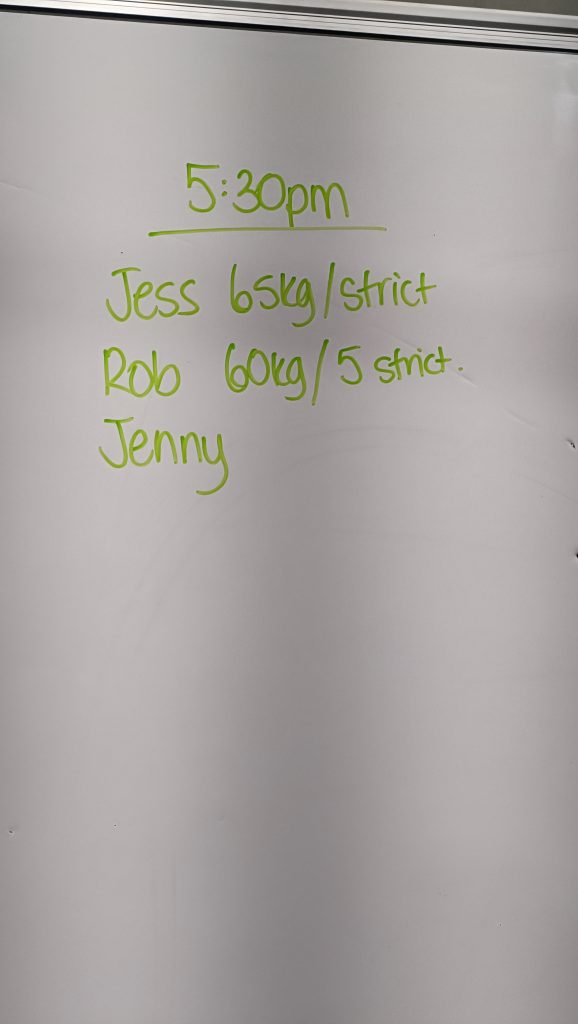 5:30pm
Jess 65kg/strict
Rob 60kg/5 strict.
Jenny